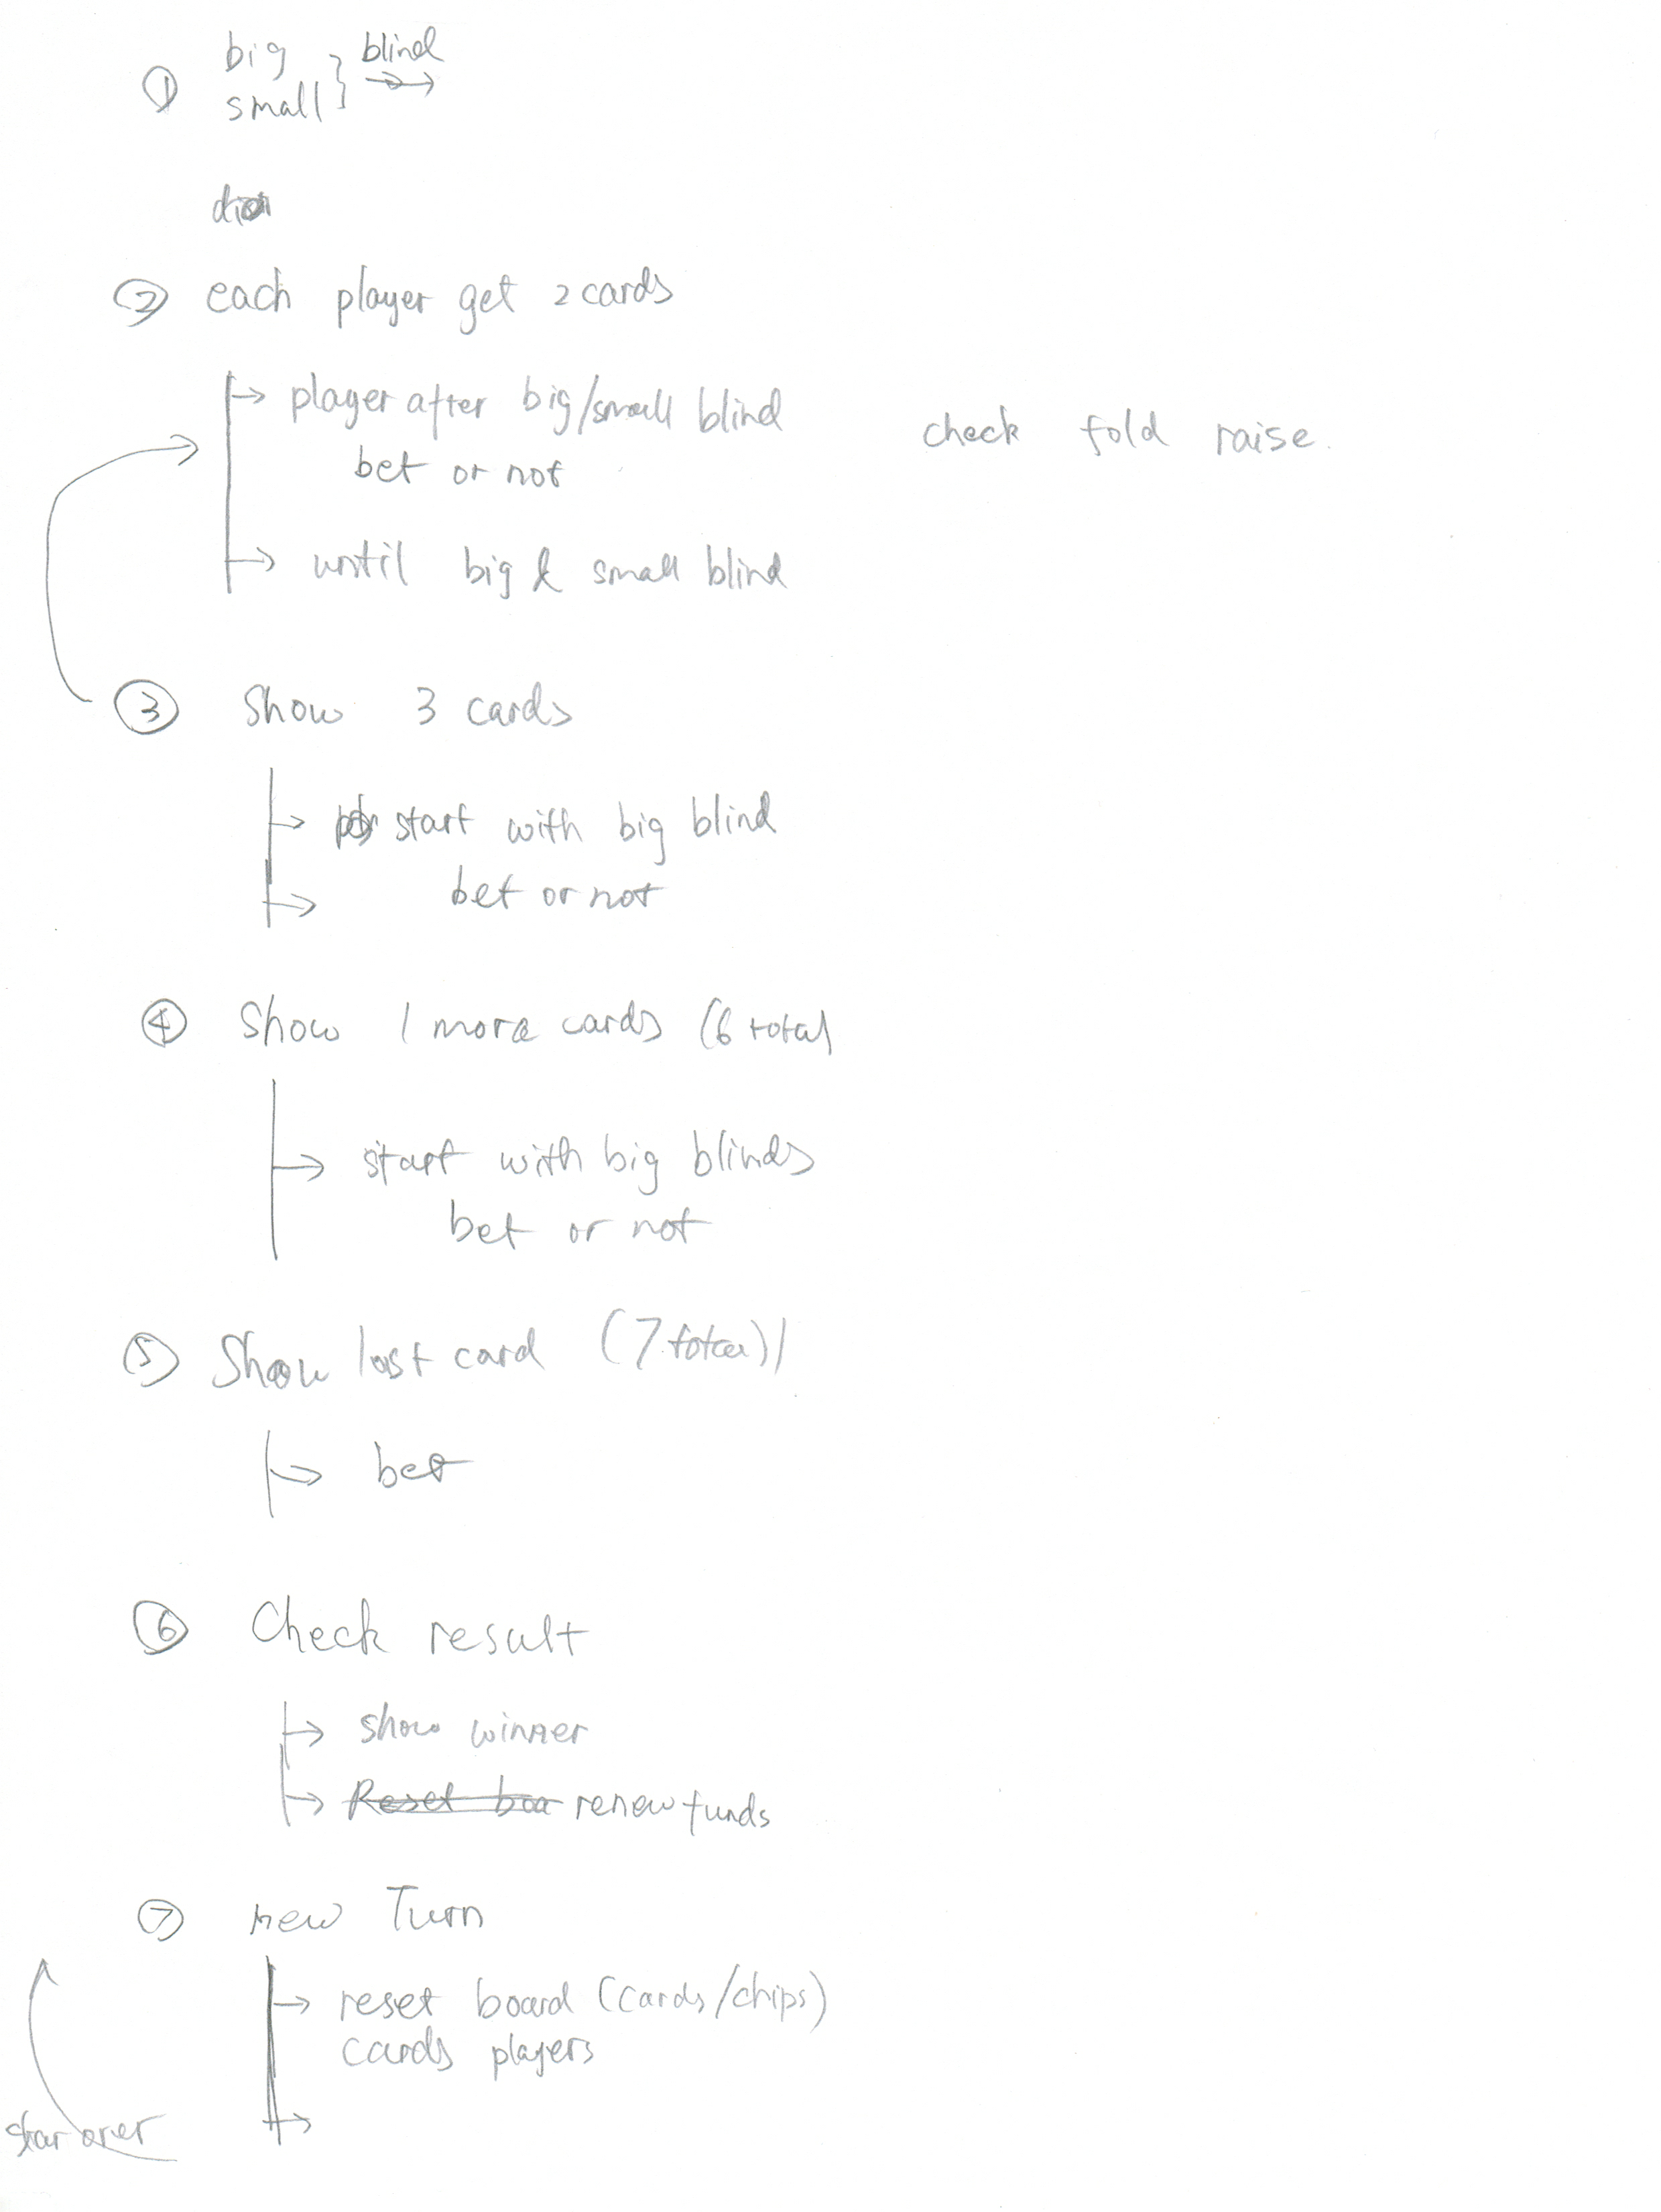 ① big
small } blind
② each player get 2 cards
player after big/small blind
bet or not
check fold raise.
until big & small blind
③ Show 3 cards
start with big blind
bet or not
④ Show 1 more cards (6 total
start with big blinds
bet or not
⑤ Show last card (7 total)
bet
⑥ Check result
show winner
Reset boa renew funds
⑦ new Turn
reset board (cards/chips)
cards players
star over